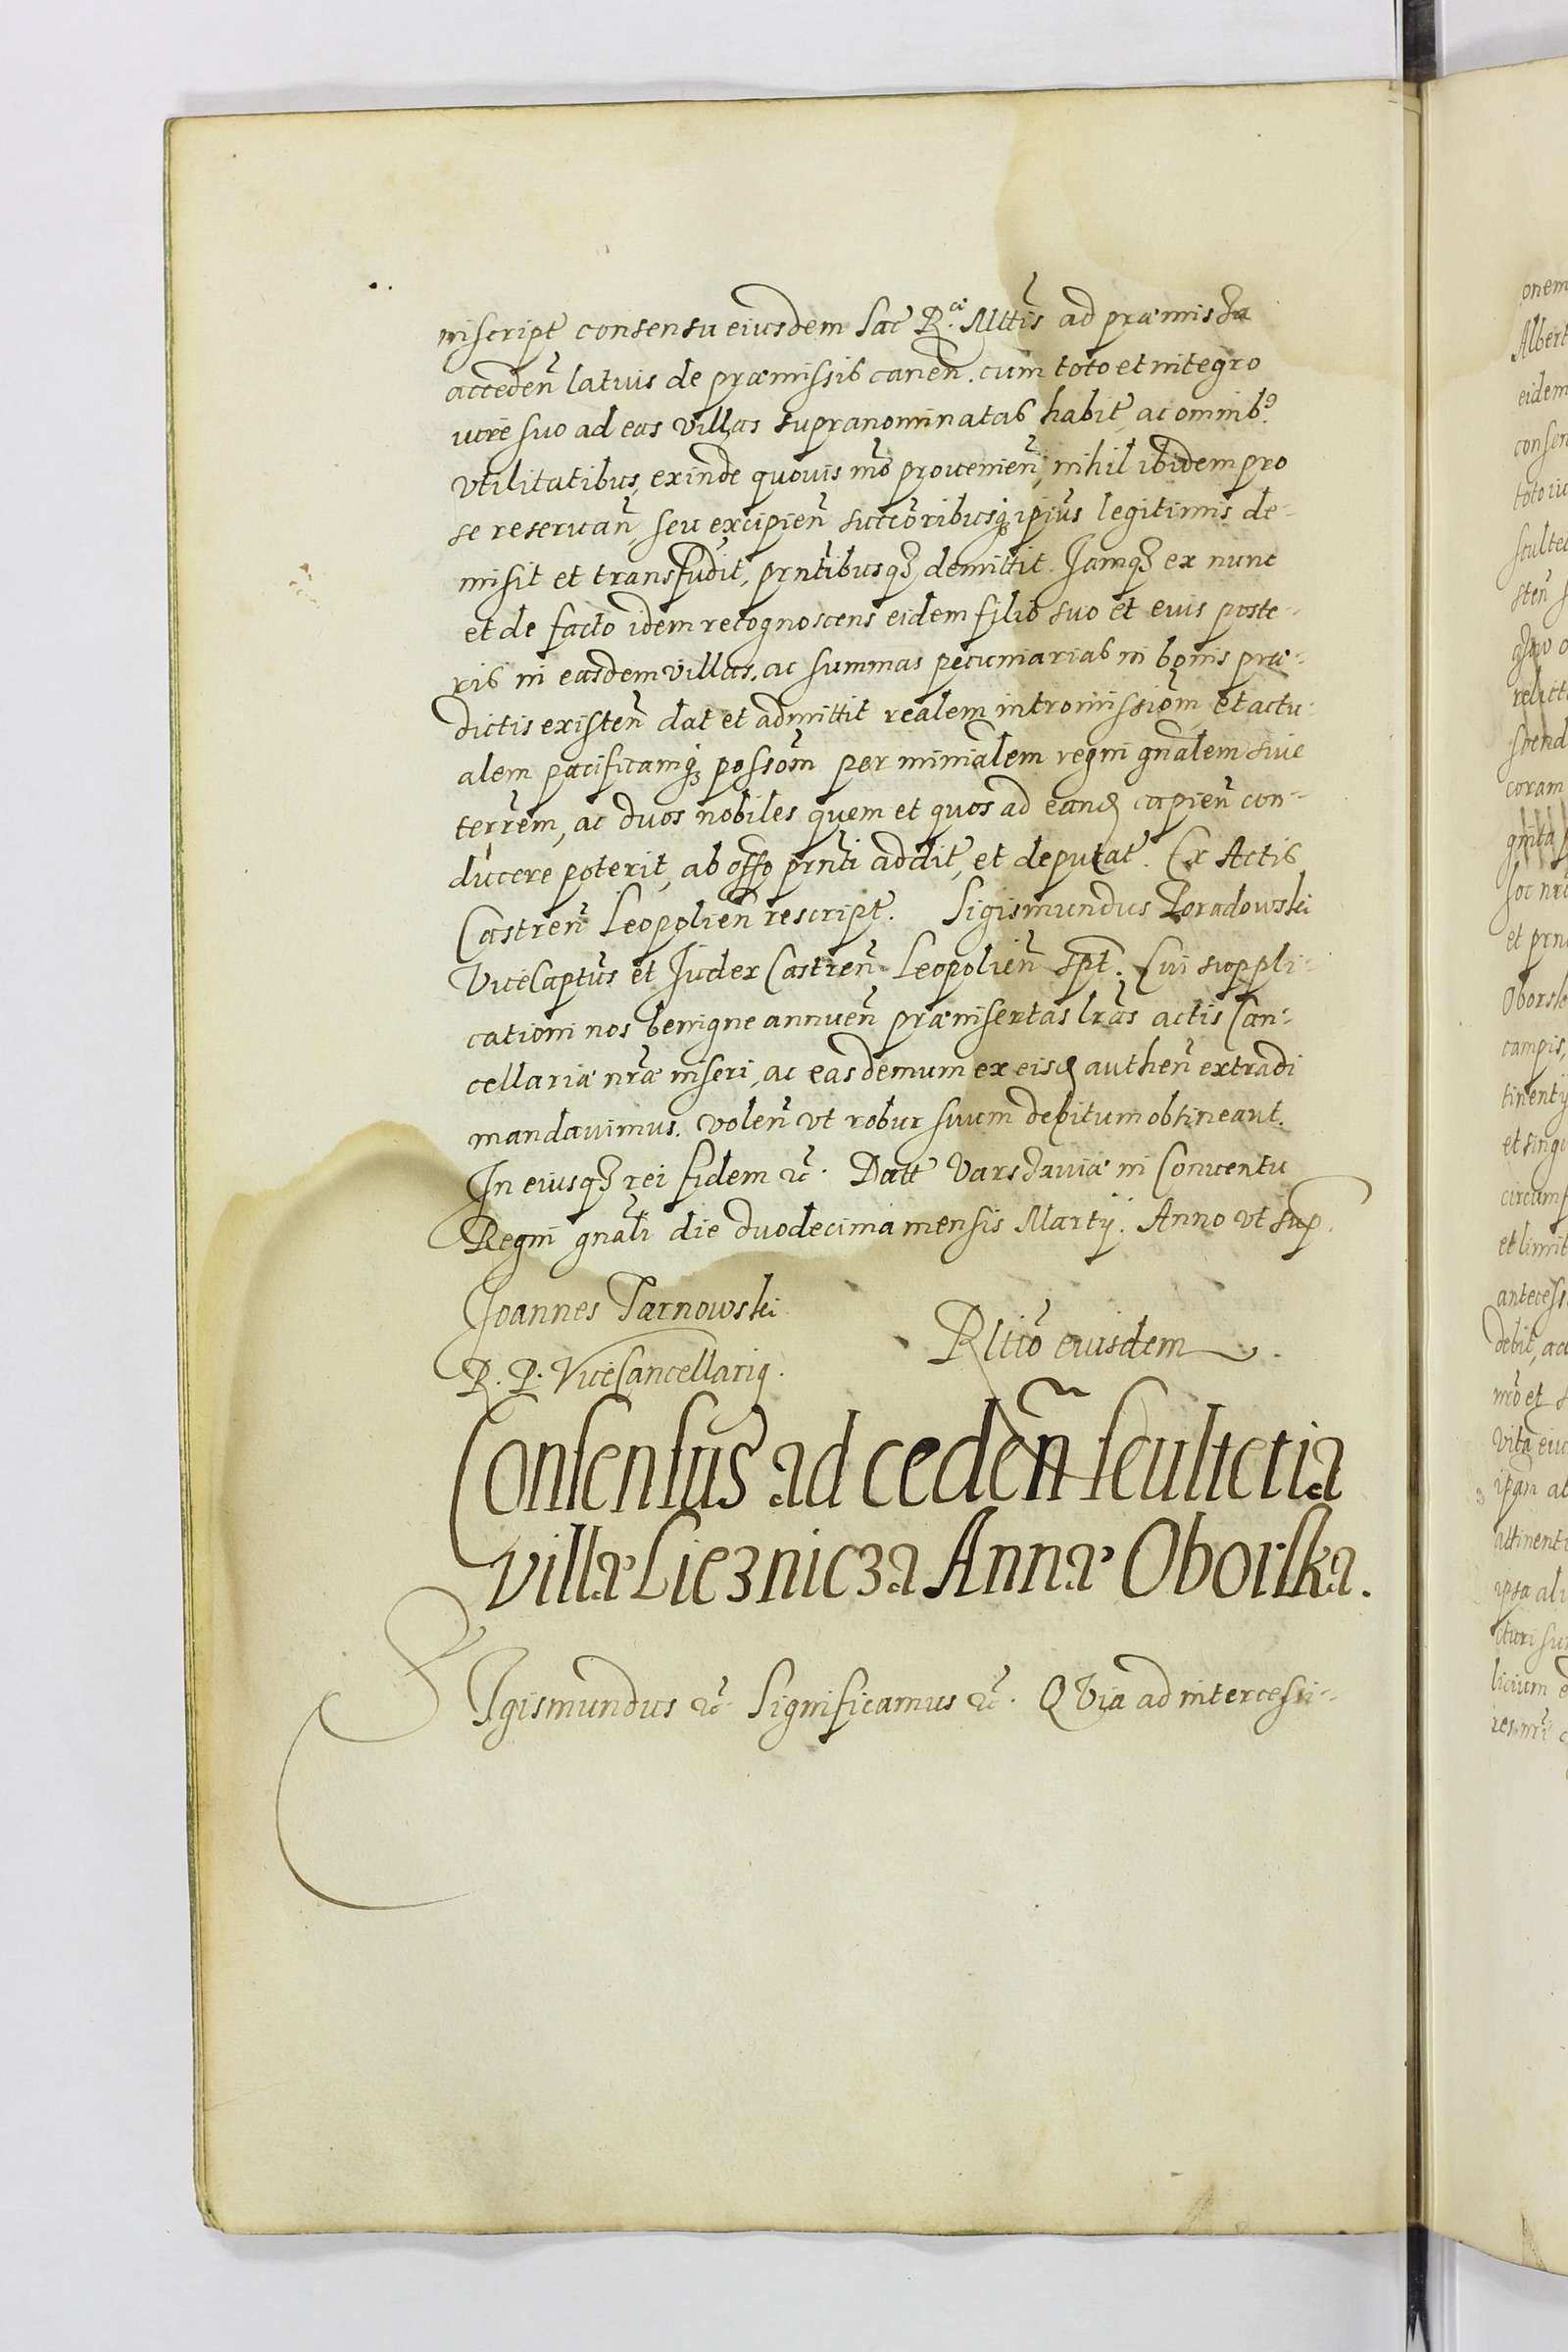 inscript consensu eiusdem Sac R.ae Mttis ad præmissa
acceden̄ latius de præmissis canen̄. cum toto et integro
iure suo ad eas villas supranominatas habit, ac omnib9
vtilitatibus, exinde quouis mō prouenien̄, nihil ibidem pro
se reseruan̄, seu excipien̄ succōribusq3 ipius legitimis de-
misit et transfudit, prntibusq3 demittit. Jamq3 ex nunc
et de facto idem recognoscens eidem filio suo et eius poste-
ris in easdem villas, ac summas pecuniarias in bonis præ-
dictis existen̄ dat et admittit realem intromissiōm et actu-
alem pacificamq3 possōm per minialem regni gnālem siue
terrēm, ac duos nobiles quem et quos ad eand capien̄ con-
ducere poterit, ab offo prnti addit, et deputat. Ex Actis
Castren̄ Leopolien̄ rescript. Sigismundus Poradowski
ViceCaptus et Judex Castren̄ Leopolien̄ spt. Cui suppli-
cationi nos benigne annuen̄ præinsertas lrās actis Can-
cellariæ nrǣ inseri, ac eas demum ex eisd authen̄ extradi
mandauimus. volen̄ vt robur suum debitum obtineant.
In eiusq3 rei fidem &c. Datt Varsauiæ in Conuentu
Regni gnāli die duodecima mensis Martij. Anno vt sup.
Joannes Tarnowski
R. P. ViceCancellariq.
Rltiō eiusdem
Consensus ad ceden̄ scultetia
villæ Lieznicza Annæ Oborska.
SIgismundus &c. Significamus &c. QVia ad intercessi-
onem
Albert
eidem
consen
toto iu
sculte
sten̄
relict
coram
et prn
Oborsk
campis,
tinentij
et singu
circumf
et limit
antecess
debit, ac
mō et
vita eiu
ipsam
attinenti
ipsa